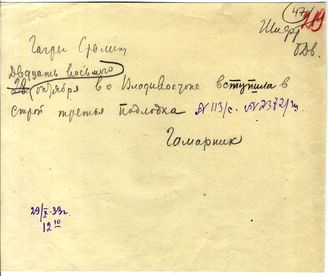 47
Шифр
219
Гагры Сталину
Двадцать восьмого
28 октября во Владивостоке вступила в
строй третья подлодка №113/с. №2372/ш
Гамарник
29/X-33г.
12 10